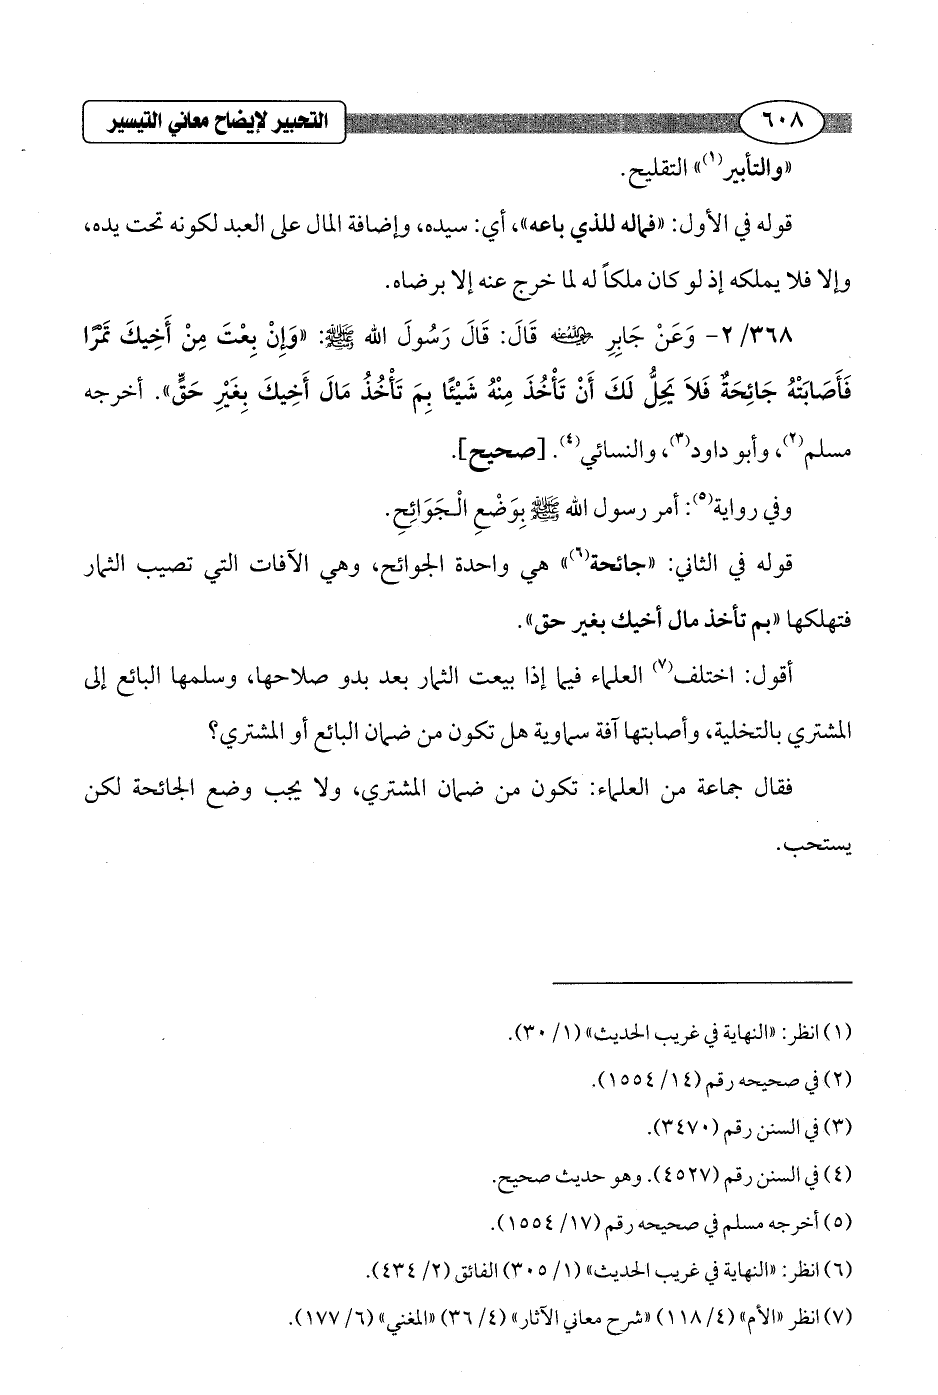 ٦٠٨ التحبير لإيضاح معاني التيسير
«والتأبير(١)» التقليح.
قوله في الأول: «فماله للذي باعه»، أي: سيده، وإضافة المال على العبد لكونه تحت يده،
وإلا فلا يملكه إذ لو كان ملكاً له لما خرج عنه إلا برضاه.
٢/٣٦٨- وَعَنْ جَابِرٍ رضي الله عنه قَالَ: قَالَ رَسُولَ الله ﷺ: «وَإِنْ بِعْتَ مِنْ أَخِيكَ تَمْرًا
فَأَصَابَتْهُ جَائِحَةٌ فَلاَ يَحِلُّ لَكَ أَنْ تَأْخُذَ مِنْهُ شَيْئًا بِمَ تَأْخُذُ مَالَ أَخِيكَ بِغَيْرِ حَقٍّ». أخرجه
مسلم(٢)، وأبو داود(٣)، والنسائي(٤). [صحيح].
وفي رواية(٥): أمر رسول الله ﷺ بِوَضْعِ الْجَوَائِحِ.
قوله في الثاني: «جائحة(٦)» هي واحدة الجوائح، وهي الآفات التي تصيب الثمار
فتهلكها «بم تأخذ مال أخيك بغير حق».
أقول: اختلف(٧) العلماء فيما إذا بيعت الثمار بعد بدو صلاحها، وسلمها البائع إلى
المشتري بالتخلية، وأصابتها آفة سماوية هل تكون من ضمان البائع أو المشتري؟
فقال جماعة من العلماء: تكون من ضمان المشتري، ولا يجب وضع الجائحة لكن
يستحب.
(١) انظر: «النهاية في غريب الحديث» (١/ ٣٠).
(٢) في صحيحه رقم (١٤/ ١٥٥٤).
(٣) في السنن رقم (٣٤٧٠).
(٤) في السنن رقم (٤٥٢٧). وهو حديث صحيح.
(٥) أخرجه مسلم في صحيحه رقم (١٧/ ١٥٥٤).
(٦) انظر: «النهاية في غريب الحديث» (١/ ٣٠٥) الفائق (٢/ ٤٣٤).
(٧) انظر «الأم» (٤/ ١١٨) «شرح معاني الآثار» (٤/ ٣٦) «المغني» (٦/ ١٧٧).